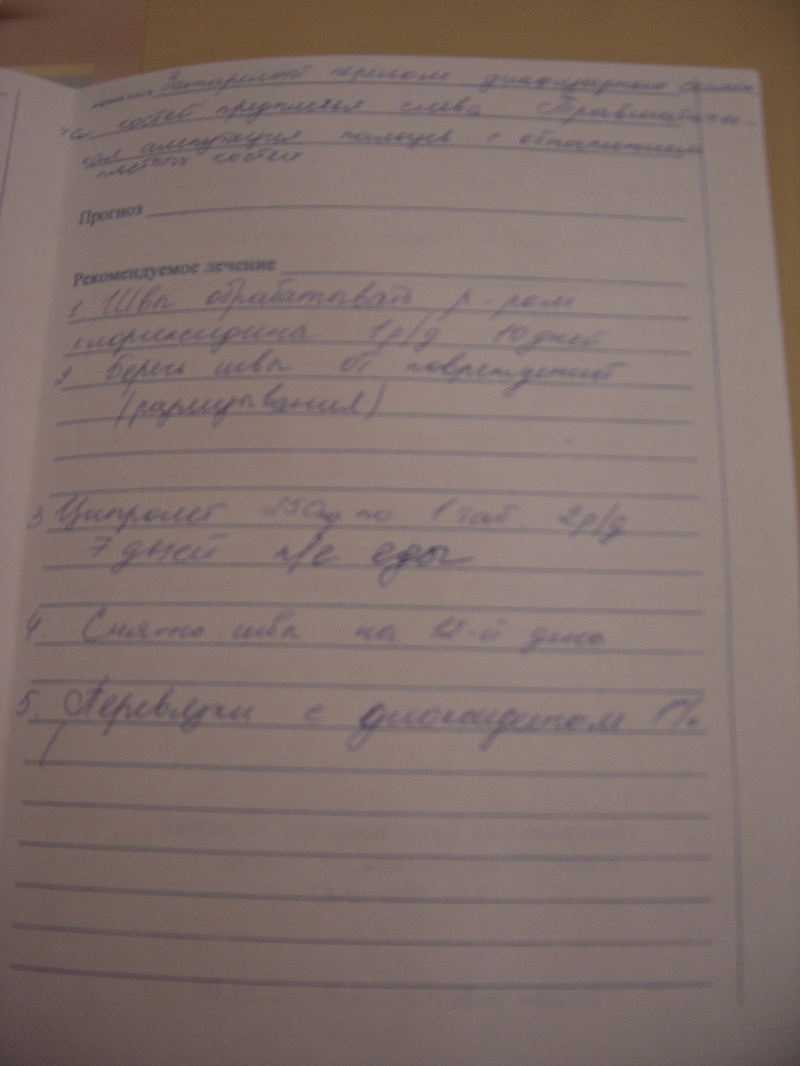 диагноз Закрытый перелом диафизарного
костей предплечья слева. Травматичес-
кая ампутация пальцев с обнажением
костей.
Прогноз
Рекомендуемое лечение
1. Швы обрабатывать р-ром
хлоргексидина 1р/д 10 дней
2 Беречь швы от повреждений
(разлизывания)
3 Ципролет 250мг по 1 таб. 2р/д
7 дней п/е еды
4. Снятие швов на 12-й день
5 Перевязки с диоксидином 1%